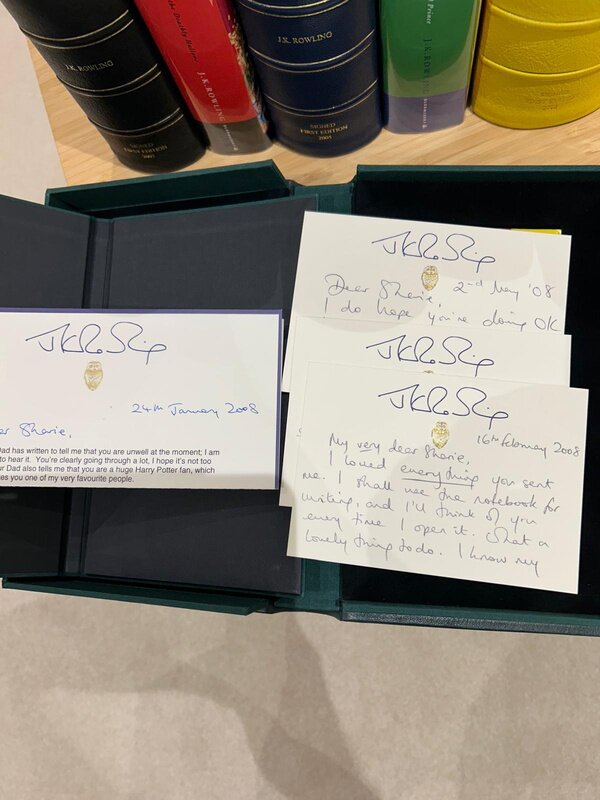 J.K. ROWLING
SIGNED
FIRST EDITION
2007
the Deathly Hallows
J.K. ROWLING
J.K. ROWLING
SIGNED
FIRST EDITION
2003
Prince
24th January 2008
ar Sharie,
Dad has written to tell me that you are unwell at the moment; I am
to hear it. You're clearly going through a lot, I hope it's not too
ur Dad also tells me that you are a huge Harry Potter fan, which
es you one of my very favourite people.
Dear Sharie, 2nd May '08
I do hope you're doing OK
16th February 2008
My very dear Sharie,
I loved everything you sent
me. I shall use the notebook for
writing, and I'll think of you
every time I open it. What a
lovely thing to do. I know my